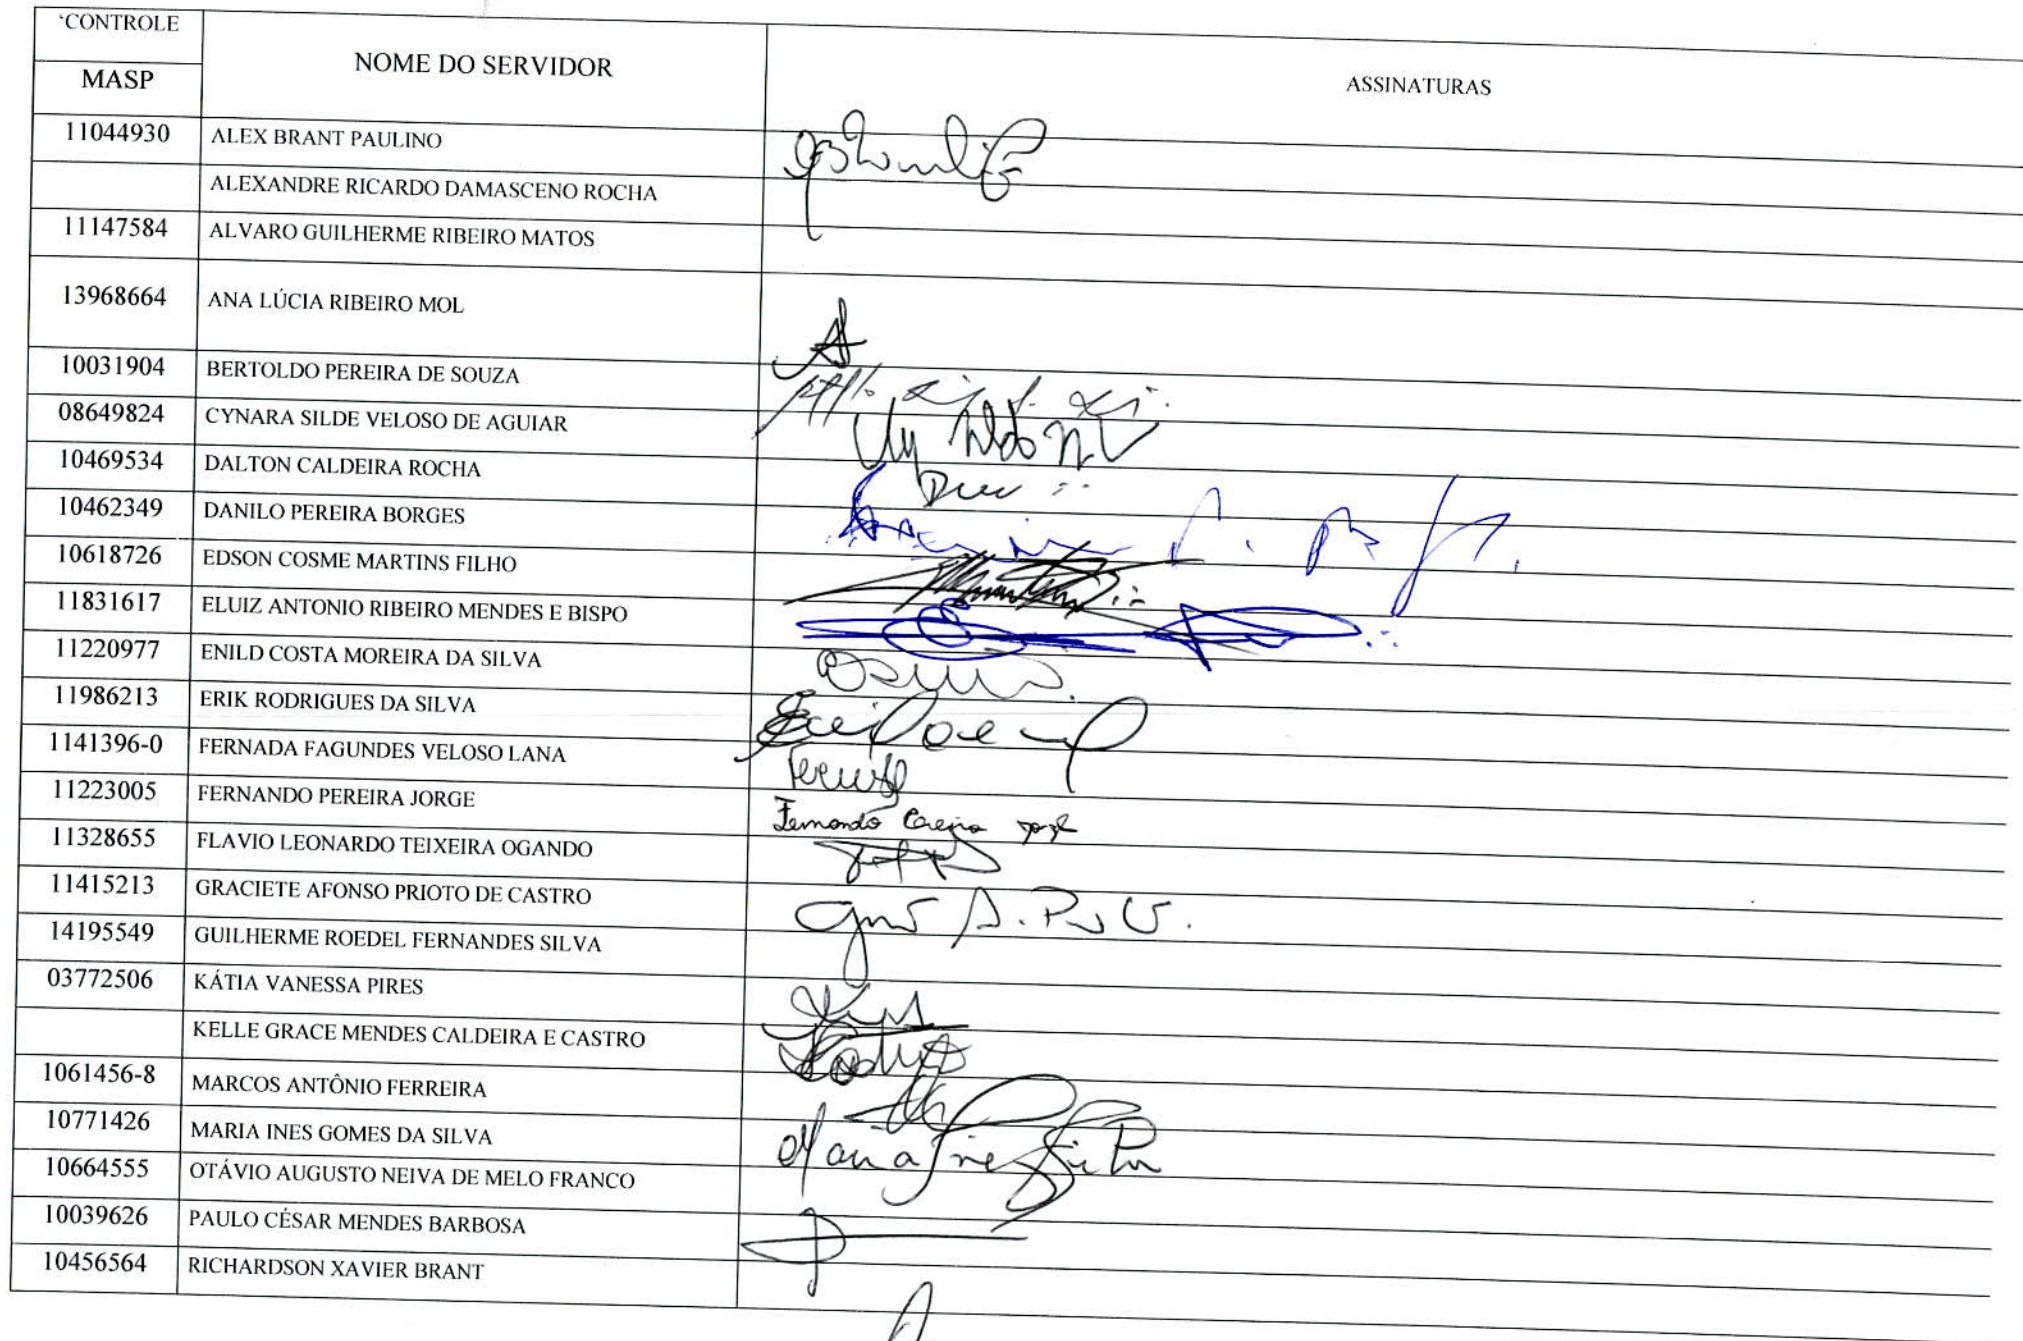 'CONTROLE
NOME DO SERVIDOR
MASP
ASSINATURAS
11044930 ALEX BRANT PAULINO
ALEXANDRE RICARDO DAMASCENO ROCHA
11147584 ALVARO GUILHERME RIBEIRO MATOS
13968664 ANA LÚCIA RIBEIRO MOL
10031904 BERTOLDO PEREIRA DE SOUZA
08649824 CYNARA SILDE VELOSO DE AGUIAR
10469534 DALTON CALDEIRA ROCHA
10462349 DANILO PEREIRA BORGES
10618726 EDSON COSME MARTINS FILHO
11831617 ELUIZ ANTONIO RIBEIRO MENDES E BISPO
11220977 ENILD COSTA MOREIRA DA SILVA
11986213 ERIK RODRIGUES DA SILVA
1141396-0 FERNADA FAGUNDES VELOSO LANA
11223005 FERNANDO PEREIRA JORGE Fernando Pereira Jorge
11328655 FLAVIO LEONARDO TEIXEIRA OGANDO
11415213 GRACIETE AFONSO PRIOTO DE CASTRO
14195549 GUILHERME ROEDEL FERNANDES SILVA
03772506 KÁTIA VANESSA PIRES
KELLE GRACE MENDES CALDEIRA E CASTRO
1061456-8 MARCOS ANTÔNIO FERREIRA
10771426 MARIA INES GOMES DA SILVA Maria Ines Silva
10664555 OTÁVIO AUGUSTO NEIVA DE MELO FRANCO
10039626 PAULO CÉSAR MENDES BARBOSA
10456564 RICHARDSON XAVIER BRANT